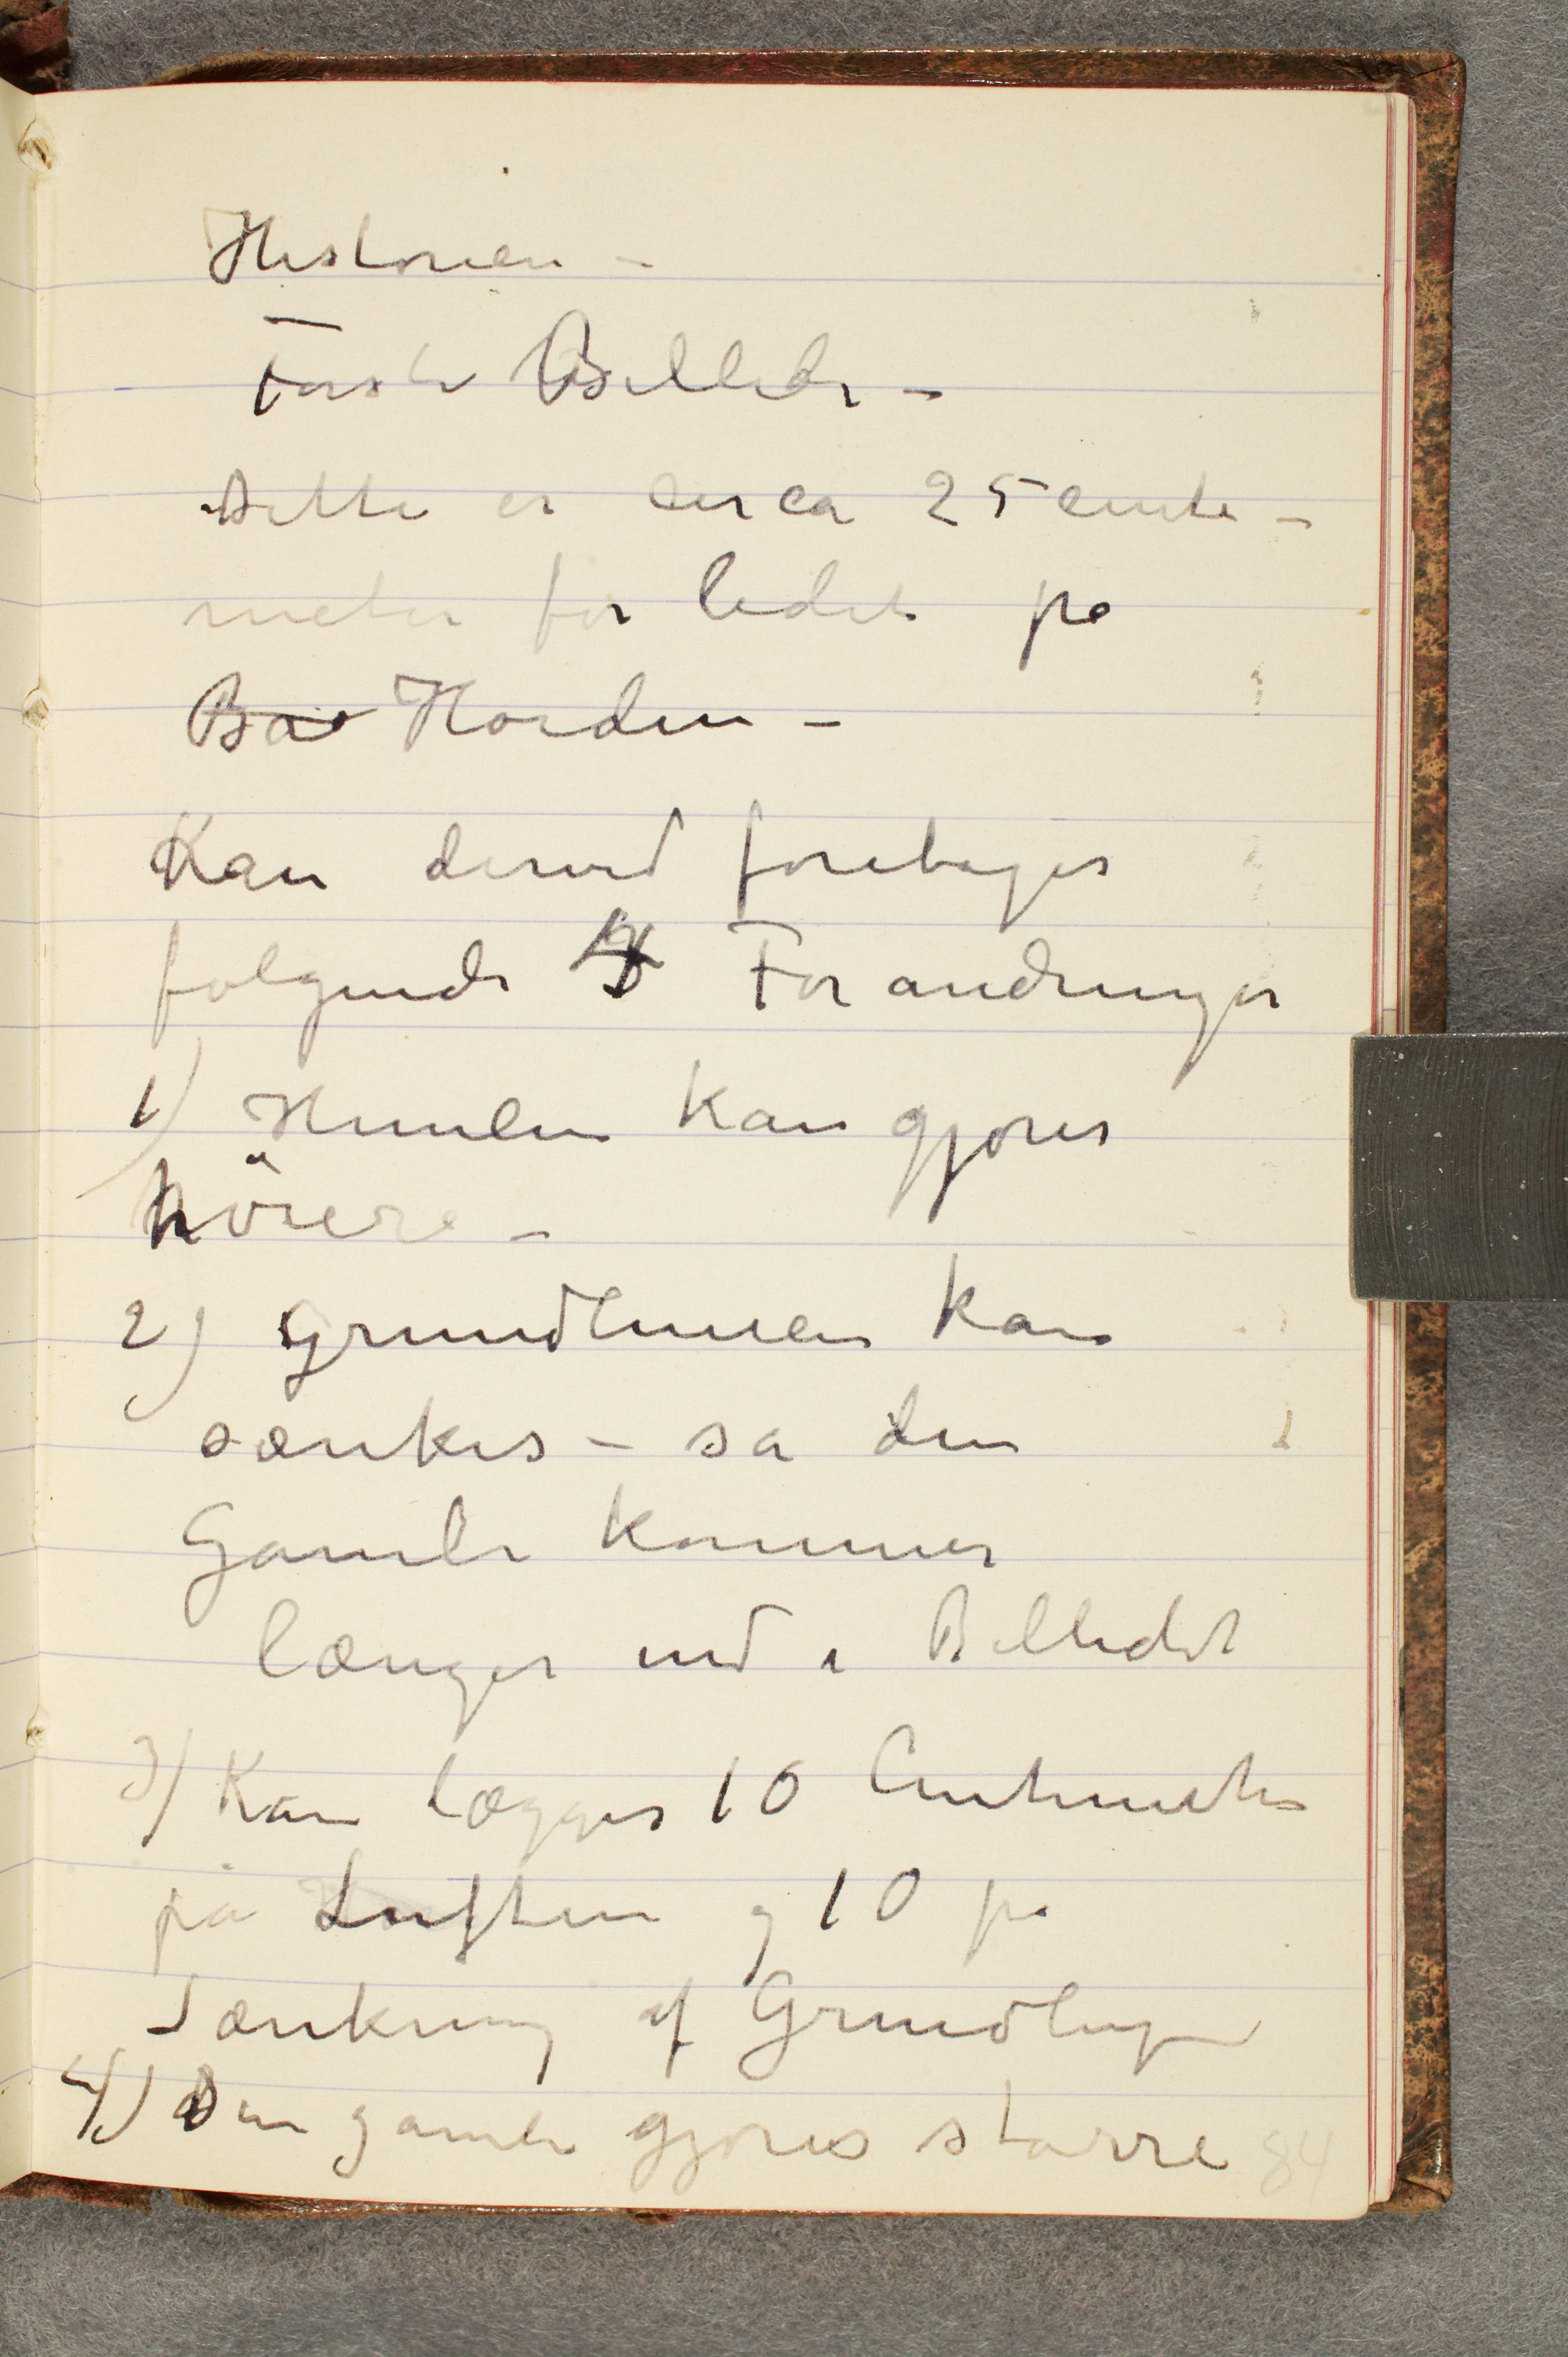 Historien –
Første Billede –
Dette er circa 25 cente-
meter for lidet på
Ba Høiden –
Kan derved foretages
følgende 4 Forandringer
1) Himlen kan gjøres
höiere –
2) Grundlinien kan
sænkes – så den
Gamle kommer
længer ind i Billedet
3) Kan lægges 10 Centimeter
på Luften og 10 på
Sænkning af Grundlinjen
4) Den gamle gjøres større
84